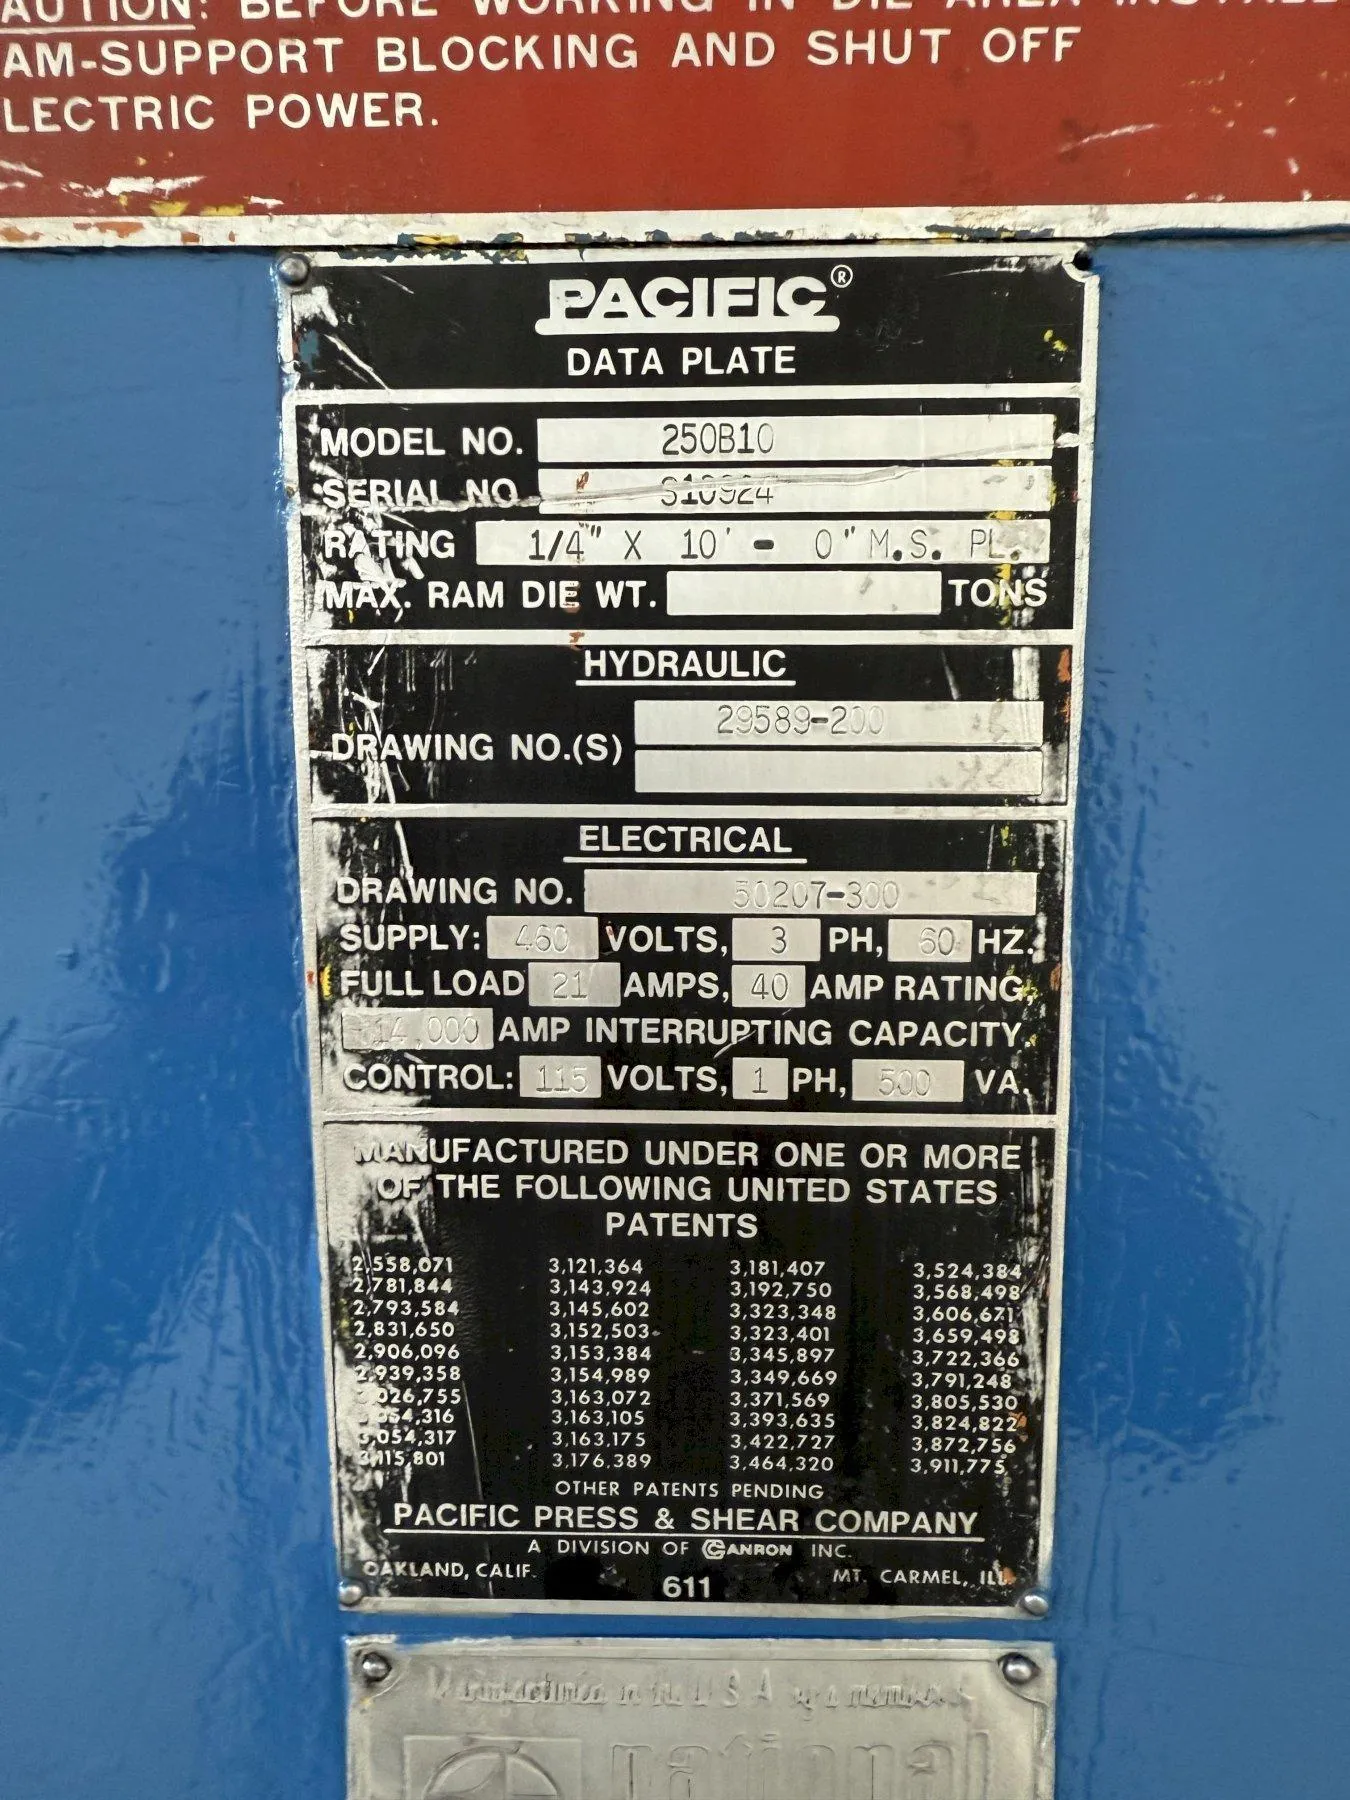 AUTION: BEFORE WORKING IN DIE AREA INSTALL
AM-SUPPORT BLOCKING AND SHUT OFF
LECTRIC POWER.
PACIFIC®
DATA PLATE
MODEL NO. 250B10
SERIAL NO. S10924
RATING 1/4" X 10' - 0" M.S. PL.
MAX. RAM DIE WT. TONS
HYDRAULIC
29589-200
DRAWING NO.(S)
ELECTRICAL
DRAWING NO. 50207-300
SUPPLY: 460 VOLTS, 3 PH, 60 HZ.
FULL LOAD 21 AMPS, 40 AMP RATING,
14,000 AMP INTERRUPTING CAPACITY.
CONTROL: 115 VOLTS, 1 PH, 500 VA.
MANUFACTURED UNDER ONE OR MORE
OF THE FOLLOWING UNITED STATES
PATENTS
2,558,071 3,121,364 3,181,407 3,524,384
2,781,844 3,143,924 3,192,750 3,568,498
2,793,584 3,145,602 3,323,348 3,606,671
2,831,650 3,152,503 3,323,401 3,659,498
2,906,096 3,153,384 3,345,897 3,722,366
2,939,358 3,154,989 3,349,669 3,791,248
3,026,755 3,163,072 3,371,569 3,805,530
3,054,316 3,163,105 3,393,635 3,824,822
3,054,317 3,163,175 3,422,727 3,872,756
3,115,801 3,176,389 3,464,320 3,911,775
OTHER PATENTS PENDING
PACIFIC PRESS & SHEAR COMPANY
A DIVISION OF CANRON INC.
OAKLAND, CALIF. 611 MT. CARMEL, ILL.
Manufactured in the U S A by a member of
national